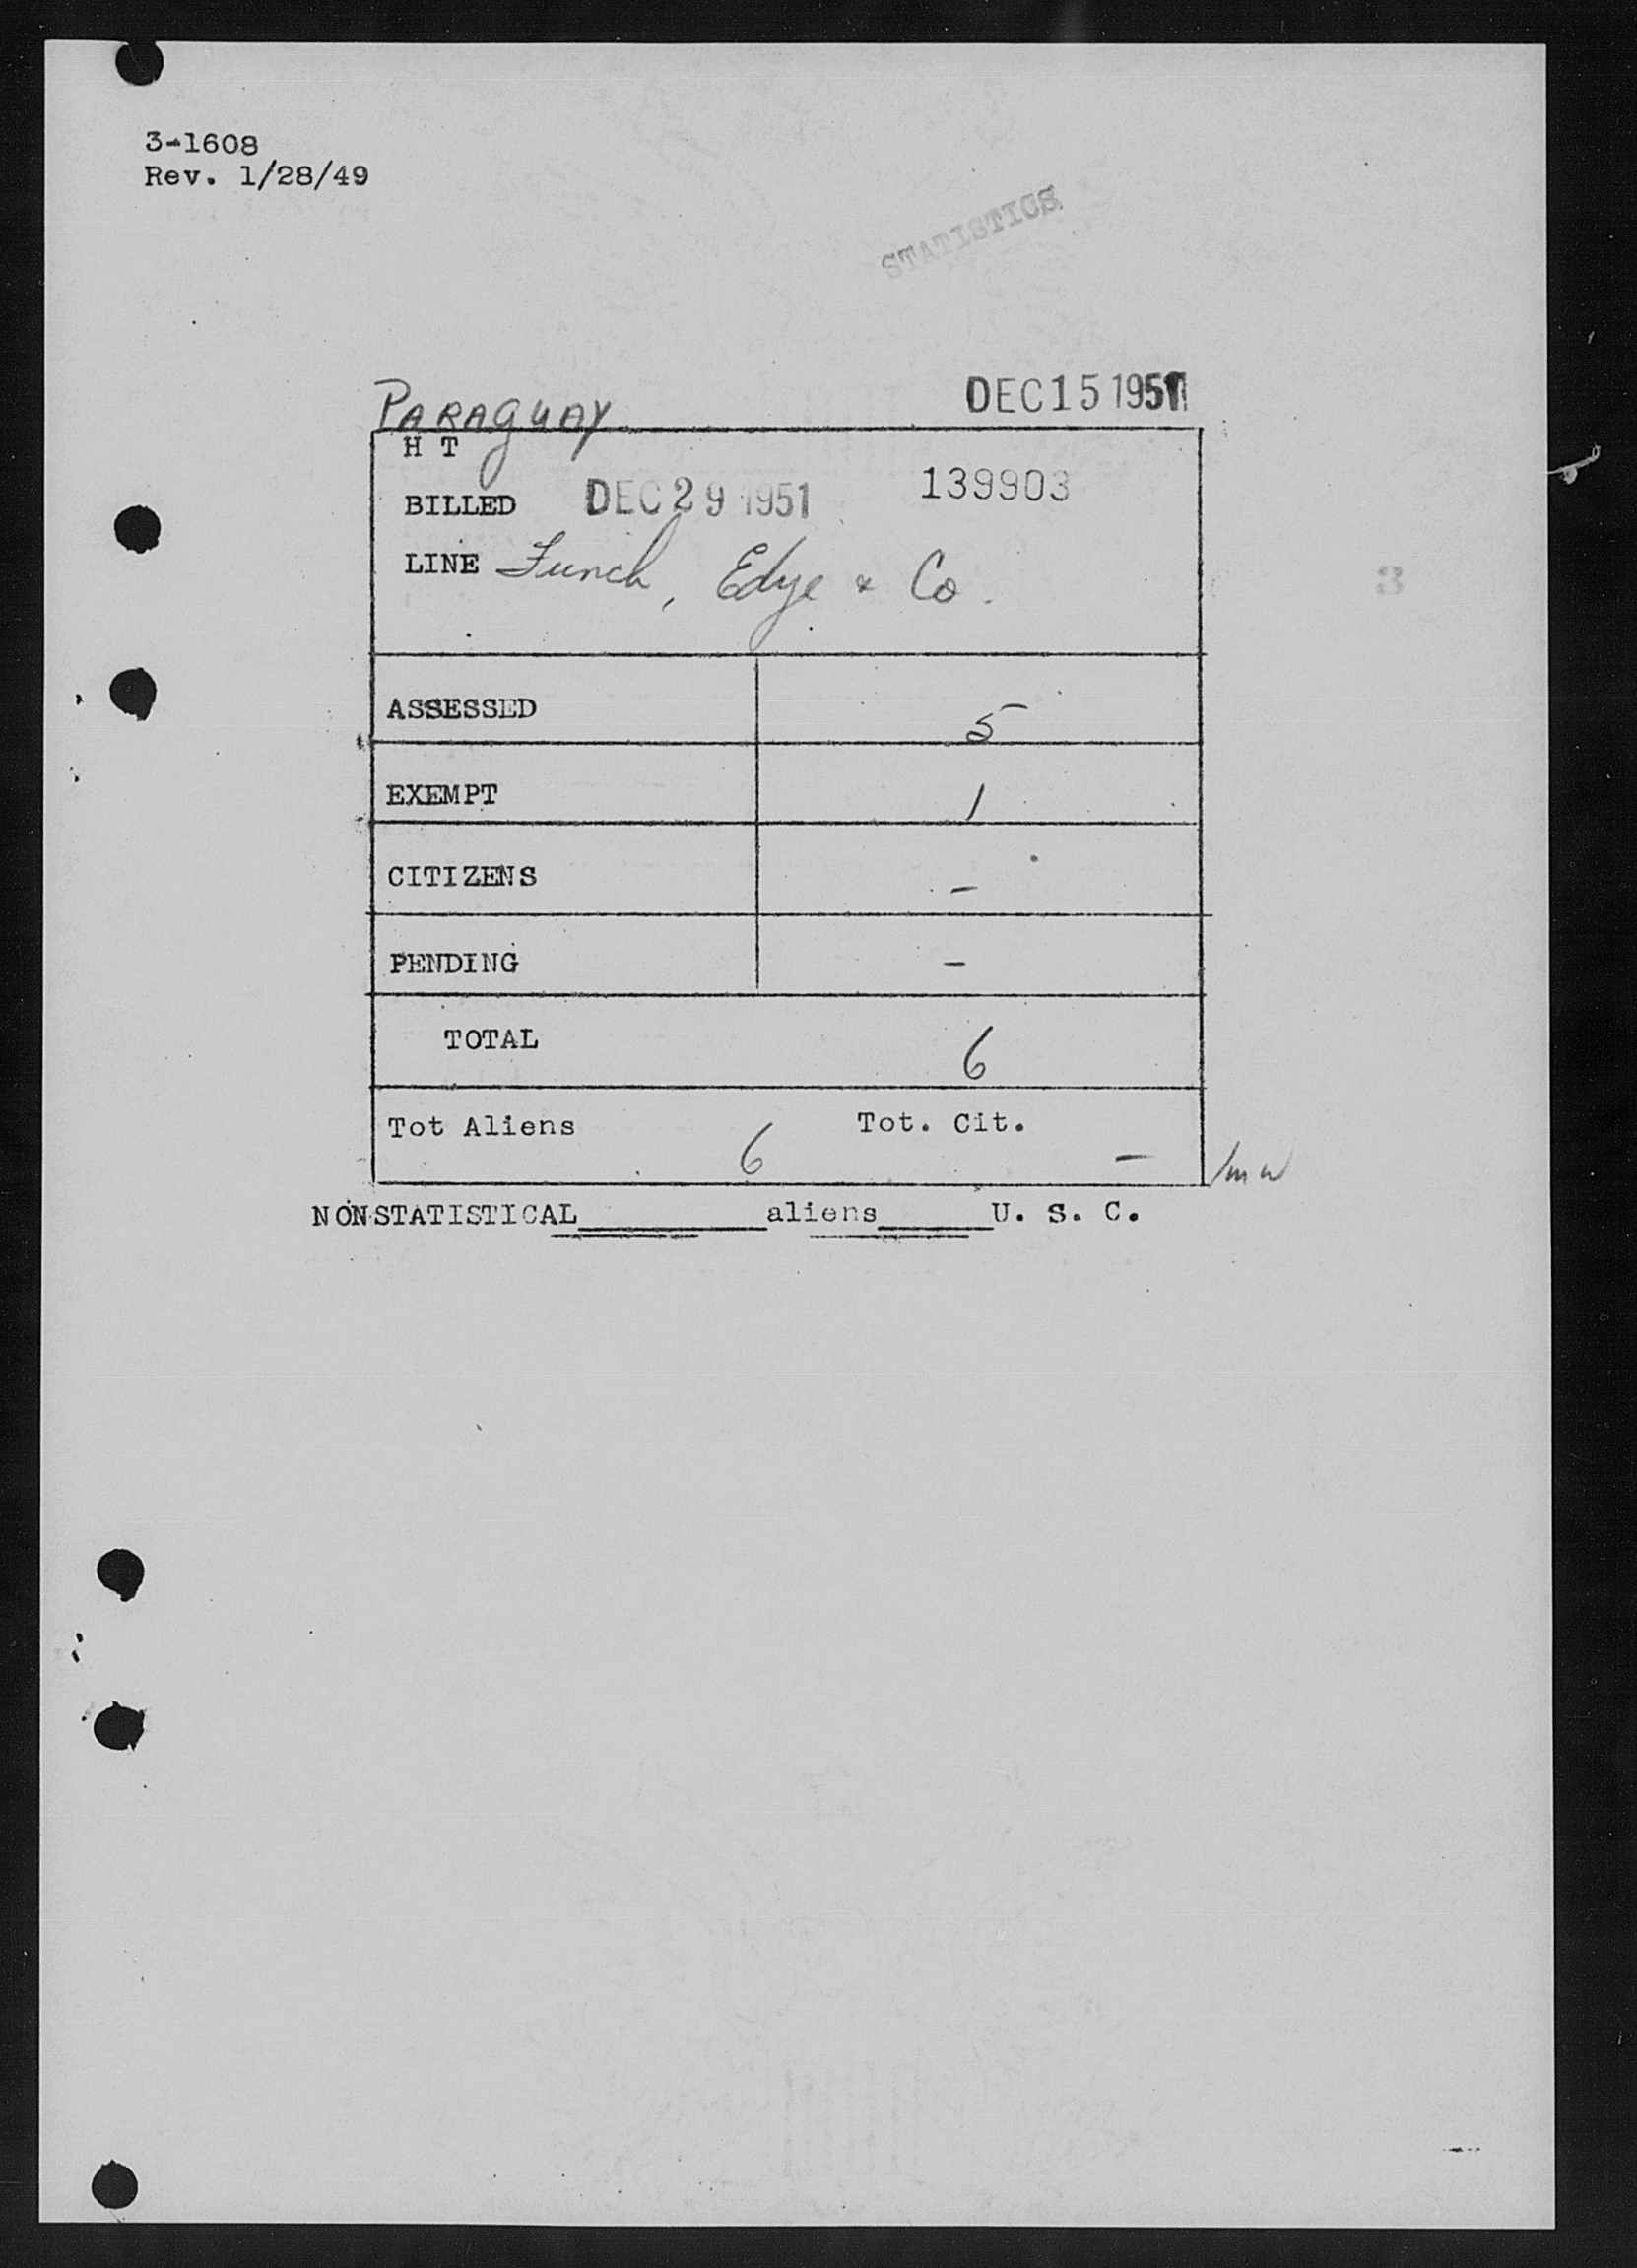 3-1608
Rev. 1/28/49
STATISTICS
PARAGUAY DEC 15 1951
H T
BILLED DEC 29 1951 139903
LINE Funch, Edye & Co.
3
ASSESSED 5
EXEMPT 1
CITIZENS -
PENDING -
TOTAL 6
Tot Aliens 6 Tot. Cit. -
NONSTATISTICAL________aliens_____U. S. C.